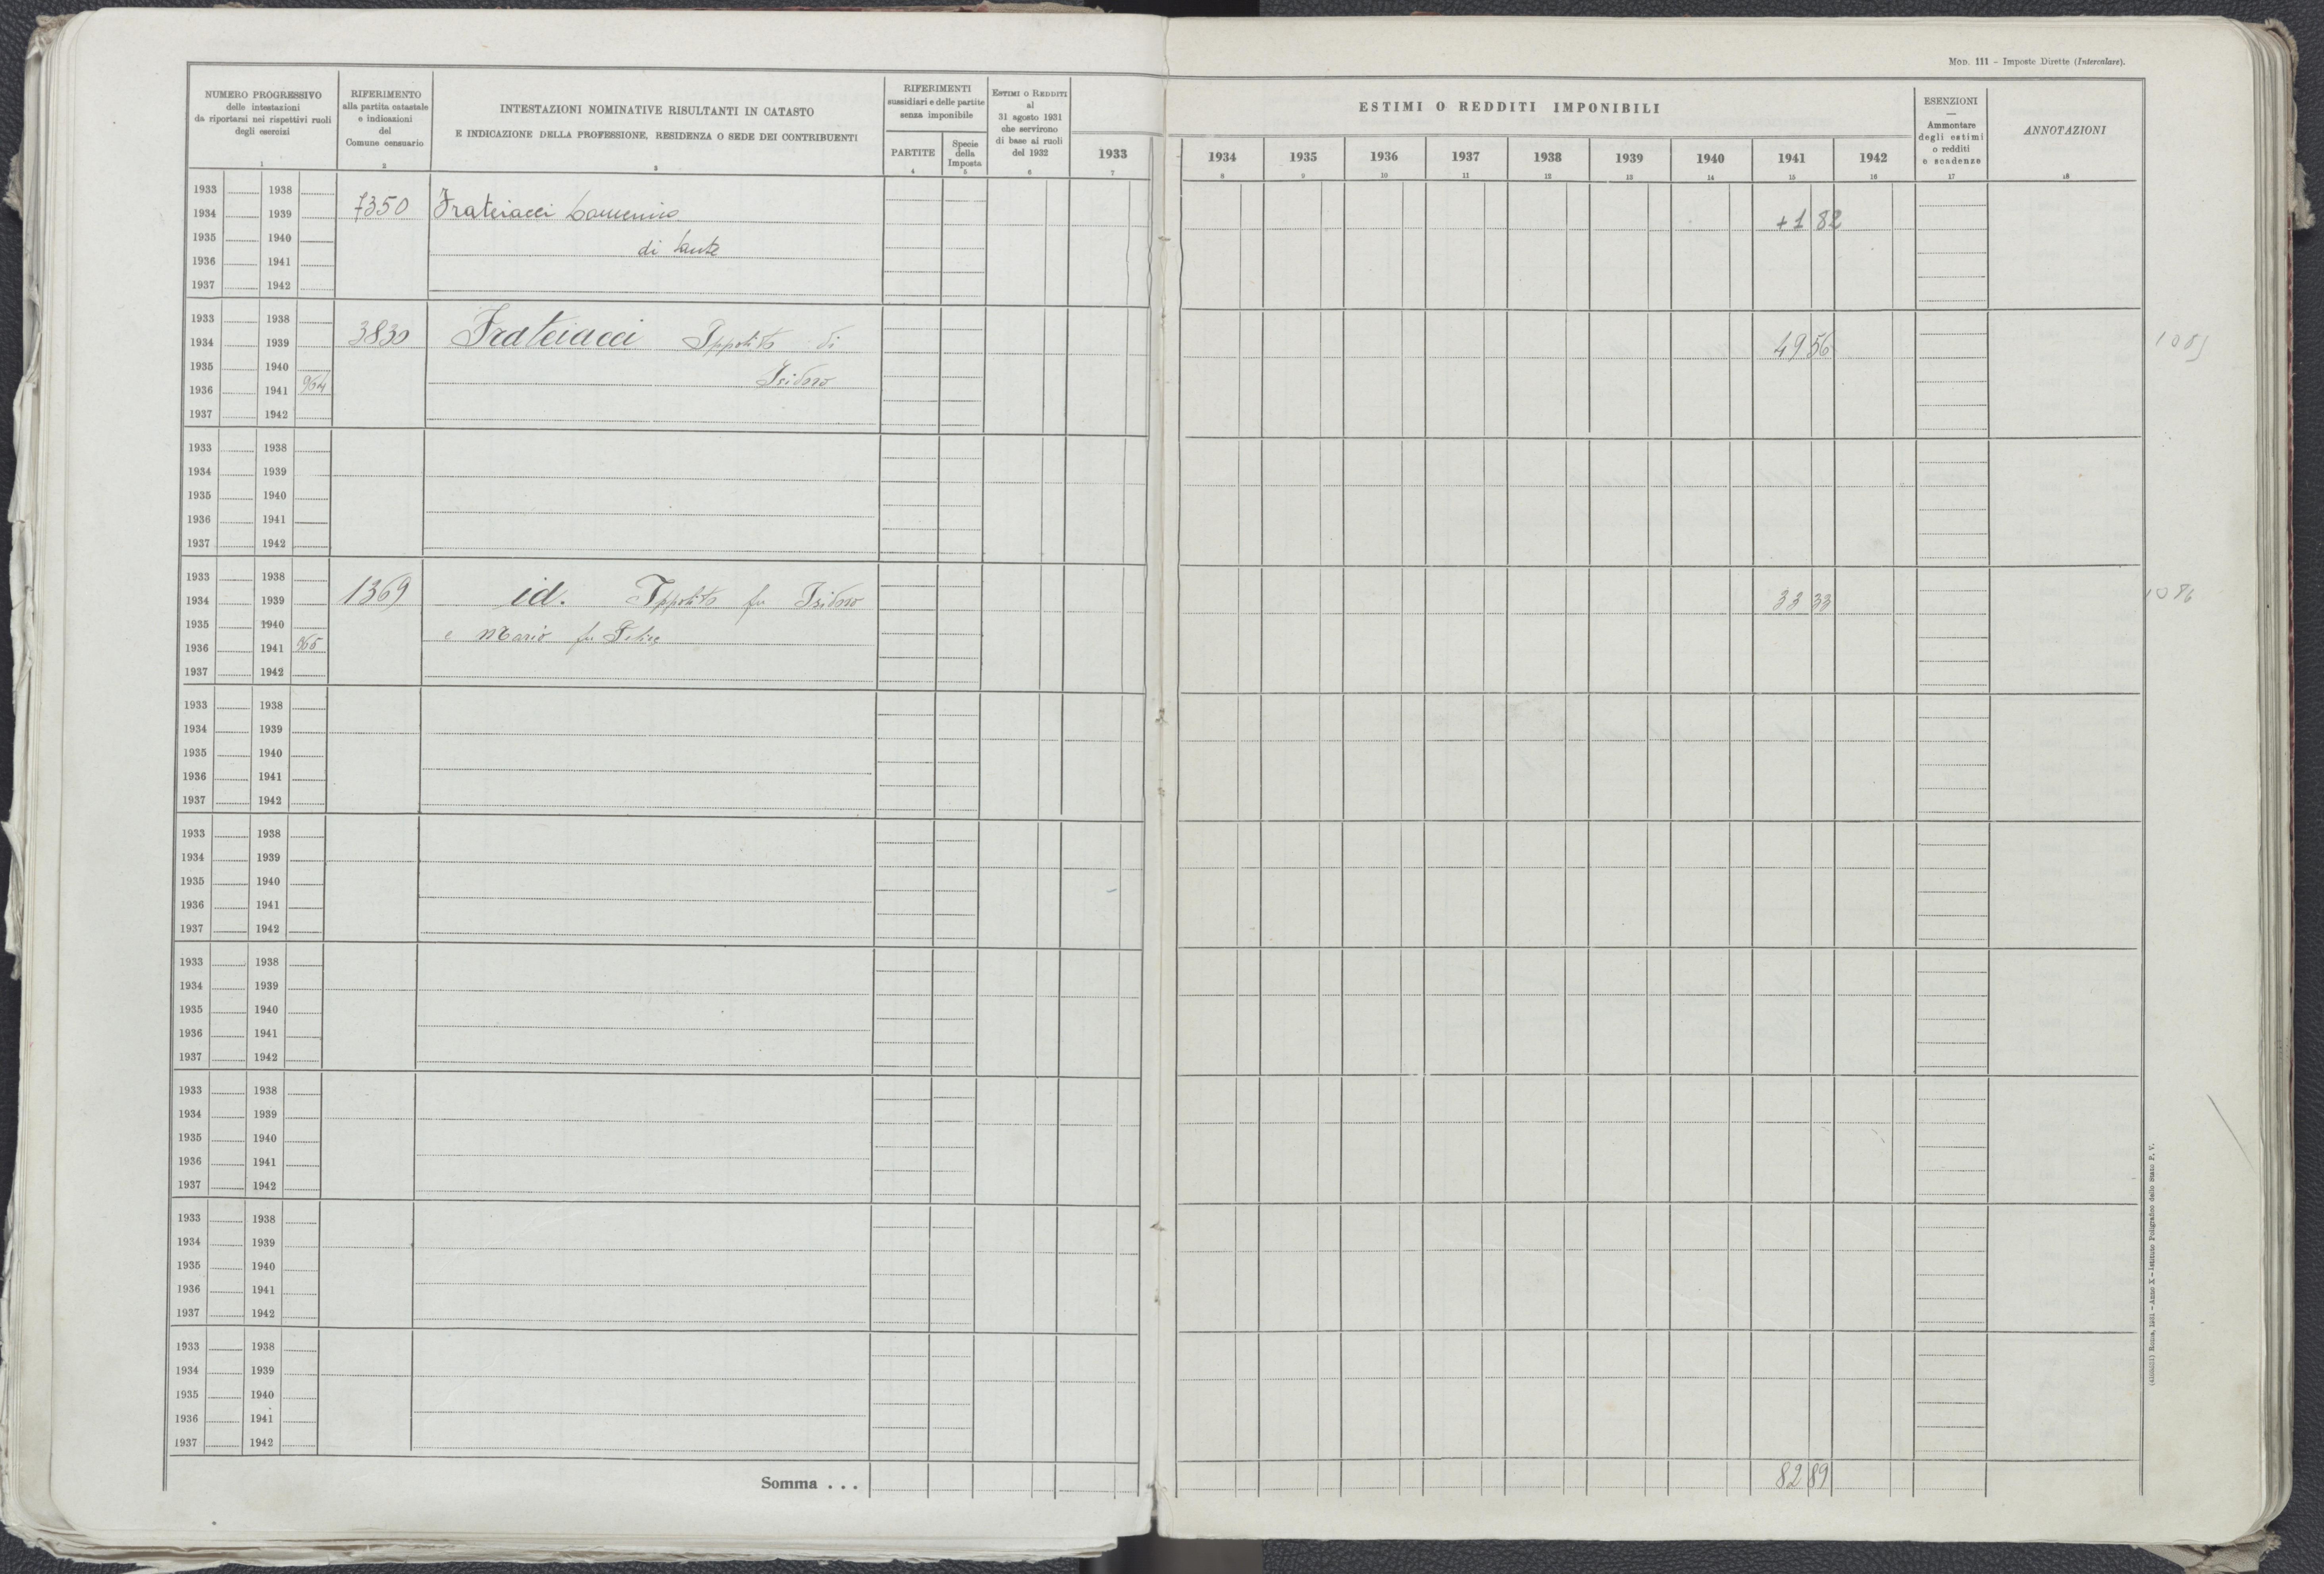 MOD. 111 - Imposte Dirette (Intercalare).
NUMERO PROGRESSIVO
delle intestazioni
da riportarsi nei rispettivi ruoli
degli esercizi
1
RIFERIMENTO
alla partita catastale
e indicazioni
del
Comune censuario
2
INTESTAZIONI NOMINATIVE RISULTANTI IN CATASTO
E INDICAZIONE DELLA PROFESSIONE, RESIDENZA O SEDE DEI CONTRIBUENTI
3
RIFERIMENTI
sussidiari e delle partite
senza imponibile
PARTITE
4
Specie
della
Imposta
5
ESTIMI O REDDITI
al
31 agosto 1931
che servirono
di base ai ruoli
del 1932
6
ESTIMI O REDDITI IMPONIBILI
1933 1934 1935 1936 1937 1938 1939 1940 1941 1942
7 8 9 10 11 12 13 14 15 16
ESENZIONI
—
Ammontare
degli estimi
o redditi
e scadenze
17
ANNOTAZIONI
18
1933 1938
1934 1939 7350 Frateiacci +1 82
1935 1940 di
1936 1941
1937 1942
1933 1938
1934 1939 3830 Frateiacci Ippolito di 49 56
1935 1940
1936 1941 964 Isidoro
1937 1942
1933 1938
1934 1939
1935 1940
1936 1941
1937 1942
1933 1938
1934 1939 1369 id. Ippolito fu Isidoro 33 33 1086
1935 1940 e Mario fu Felice
1936 1941 965
1937 1942
1933 1938
1934 1939
1935 1940
1936 1941
1937 1942
1933 1938
1934 1939
1935 1940
1936 1941
1937 1942
1933 1938
1934 1939
1935 1940
1936 1941
1937 1942
1933 1938
1934 1939
1935 1940
1936 1941
1937 1942
1933 1938
1934 1939
1935 1940
1936 1941
1937 1942
1933 1938
1934 1939
1935 1940
1936 1941
1937 1942
Somma . . . 82 89
Roma, 1931 - Anno X - Istituto Poligrafico dello Stato P. V.